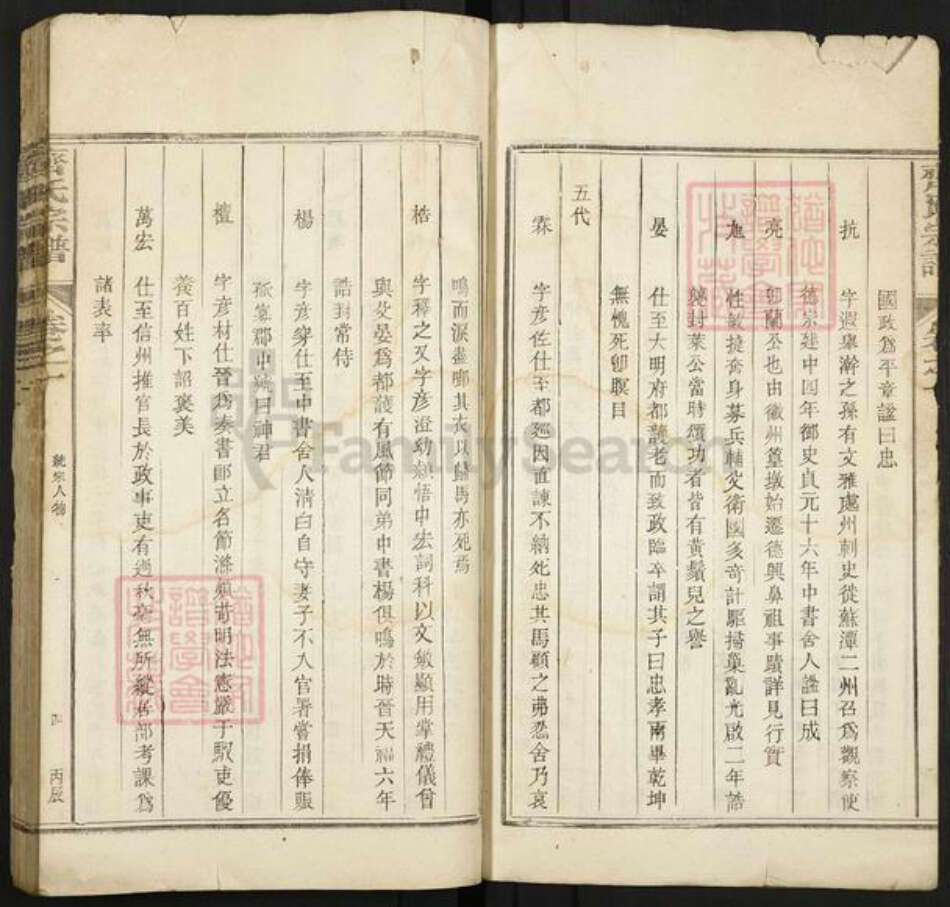 國政為平章諡曰忠
抗
字遐舉瀚之孫有文雅處州刺史從蘇潭二州召為觀察使
德宗建中四年御史貞元十六年中書舍人諡曰成
亮
卽蘭公也由徽州篁墩始遷德興鼻祖事蹟詳見行實
性敏捷奮身募兵輔父衛國多奇計驅掃巢亂光啟二年誥
襲封萊公當時頌功者皆有黃鬚兒之譽
晏
仕至大明府都護老而致政臨卒謂其子曰忠孝兩畢乾坤
無愧死卽瞑目
五代
霖
字彥佐仕至都巡因直諫不納死忠其馬顧之弗忍舍乃哀
鳴而淚盡啣其衣以歸馬亦死焉
楁
字釋之又字彥澄幼穎悟中宏詞科以文敏顯用掌禮儀曾
與父晏為都護有風節同弟中書楊俱鳴於時晉天福六年
誥封常侍
楊
字彥穿仕至中書舍人清白自守妻子不入官署嘗捐俸賑
郡中號曰神君
檀
字彥材仕晉為秦書郎立名節滌煩苛明法憲嚴于馭吏優
養百姓下詔褒美
萬宏
仕至信州推官長於政事吏有過秋毫無所縱吏部考課為
諸表率
齊氏宗譜
卷之一
統宗人物
四
丙辰
FamilySearch